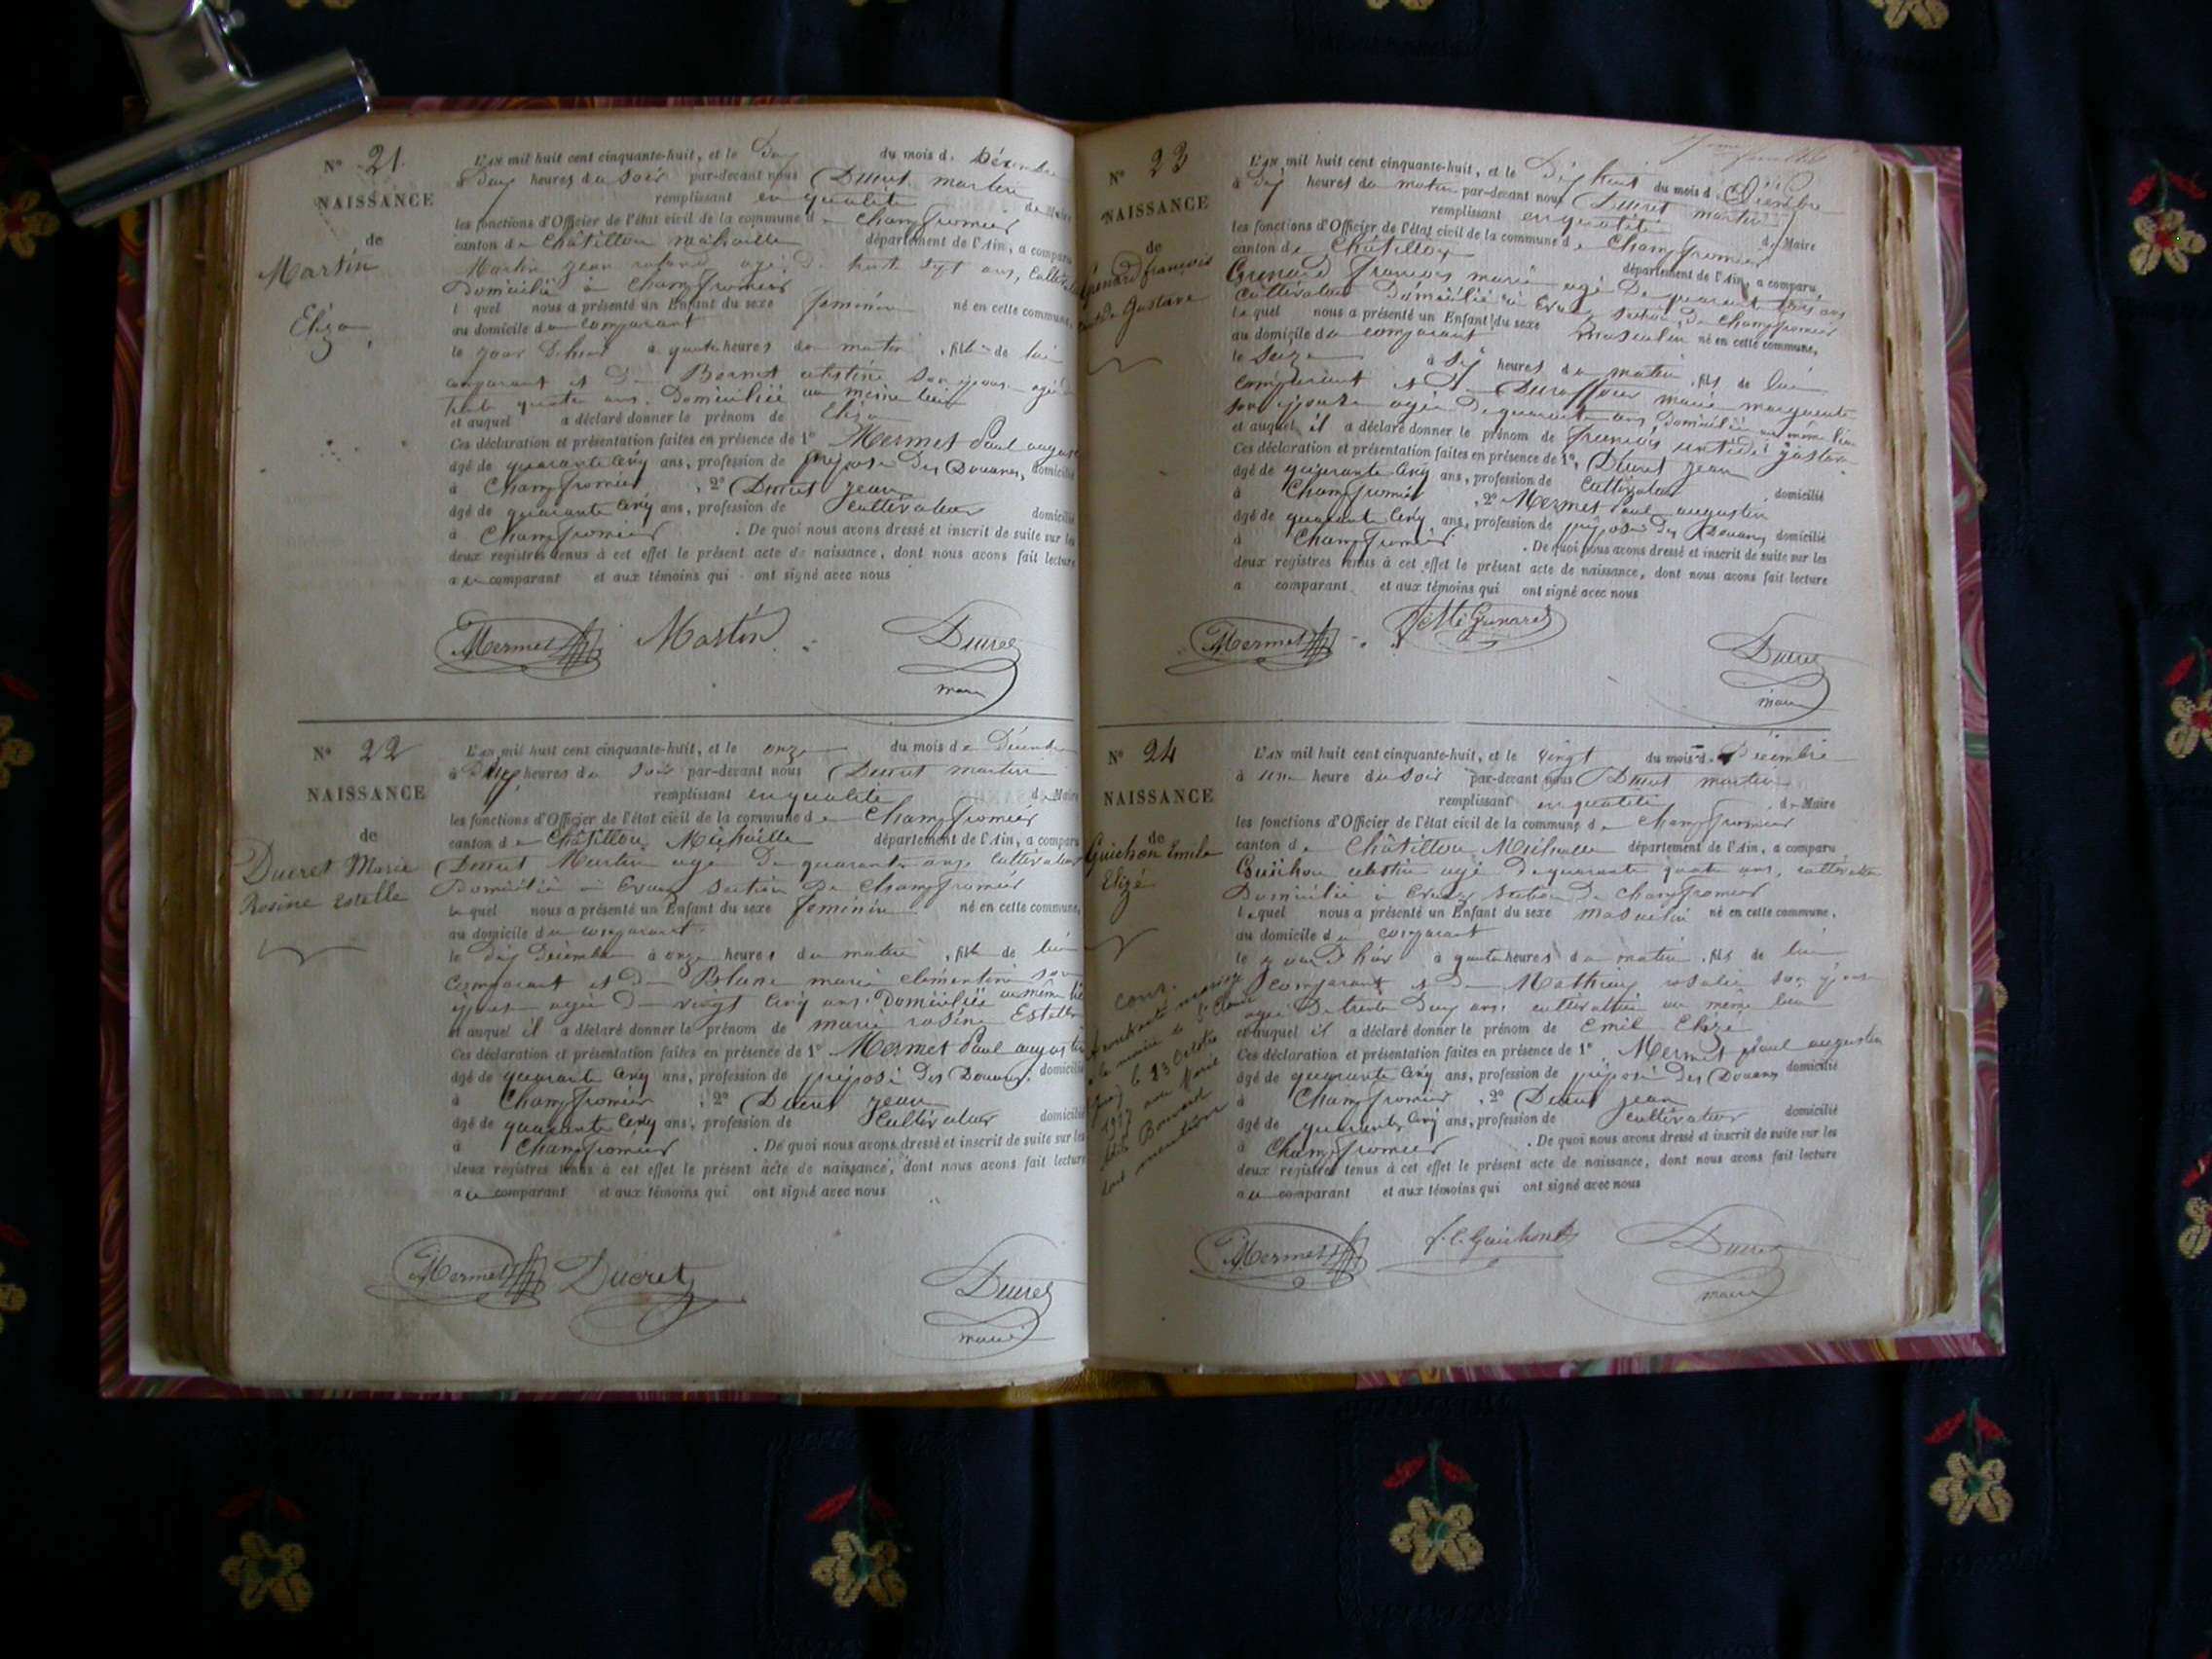 N° 21.
NAISSANCE
de
Martin
Eliza
L'AN mil huit cent cinquante-huit, et le du mois de Décembre
à heures du soir par-devant nous Ducret martin
remplissant en qualité de Maire
les fonctions d'Officier de l'état civil de la commune de Champfromier
canton de Châtillon michaille département de l'Ain, a comparu
Martin jean agé de trente sept ans,
Domicilié à Champfromier
lequel nous a présenté un Enfant du sexe feminin né en cette commune,
au domicile du comparant
le jour d'hier à quatre heures du matin, fille de lui
comparant et de Bornet celestine son épouse agée de
trente quatre ans. Domiciliée au même lieu
et auquel a déclaré donner le prénom de Eliza
Ces déclaration et présentation faites en présence de 1° Mermet Paul august
âgé de quarante cinq ans, profession de préposé des Douanes, domicilié
à Champfromier, 2° Ducret jean
âgé de quarante cinq ans, profession de cultivateur domicilié
à Champfromier. De quoi nous avons dressé et inscrit de suite sur les
deux registres tenus à cet effet le présent acte de naissance, dont nous avons fait lecture
au comparant et aux témoins qui ont signé avec nous
Mermet Martin Ducret
maire
N° 22
NAISSANCE
de
Ducret Marie
Rosine Estelle
L'AN mil huit cent cinquante-huit, et le onze du mois de Décembre
à heures du soir par-devant nous Ducret martin
remplissant en qualité de Maire
les fonctions d'Officier de l'état civil de la commune de Champfromier
canton de Châtillon Michaille département de l'Ain, a comparu
Ducret Martin agé de quarante onze cultivateur
Domicilié à Evuaz section de Champfromier
lequel nous a présenté un Enfant du sexe feminin né en cette commune,
au domicile du comparant.
le dix Décembre à onze heures du matin, fille de lui
comparant et de Blanc marie clémentine son
épouse agée de vingt cinq ans. Domiciliée au même lieu
et auquel il a déclaré donner le prénom de marie rosine Estelle
Ces déclaration et présentation faites en présence de 1° Mermet Paul augustin
âgé de quarante cinq ans, profession de préposé des Douanes, domicilié
à Champfromier, 2° Ducret jean
âgé de quarante cinq ans, profession de cultivateur domicilié
à Champfromier. De quoi nous avons dressé et inscrit de suite sur les
deux registres tenus à cet effet le présent acte de naissance, dont nous avons fait lecture
au comparant et aux témoins qui ont signé avec nous
Mermet Ducret Ducret
maire
N° 23
NAISSANCE
de
Grenard françois
Gustave
L'AN mil huit cent cinquante-huit, et le dix huit du mois de Décembre
à dix heures du matin par-devant nous Ducret martin
remplissant en qualité de Maire
les fonctions d'Officier de l'état civil de la commune de Champfromier
canton de Châtillon département de l'Ain, a comparu
Grenard françois marie agé de quarant trois ans
cultivateur Domicilié à Evuaz section de Champfromier
lequel nous a présenté un Enfant du sexe masculin né en cette commune,
au domicile du comparant
le seize à six heures du matin, fils de lui
comparant et de Duraffour marie marguerite
son épouse agée de quarante ans, Domiciliée au même lieu
et auquel il a déclaré donner le prénom de françois gustave
Ces déclaration et présentation faites en présence de 1° Ducret jean
âgé de quarante cinq ans, profession de cultivateur domicilié
à Champfromier, 2° Mermet Paul augustin
âgé de quarante cinq ans, profession de préposé des Douanes domicilié
à Champfromier. De quoi nous avons dressé et inscrit de suite sur les
deux registres tenus à cet effet le présent acte de naissance, dont nous avons fait lecture
a comparant et aux témoins qui ont signé avec nous
Mermet Grenard Ducret
maire
N° 24
NAISSANCE
de
Guichon Emile
Elizé
L'AN mil huit cent cinquante-huit, et le vingt du mois de Décembre
à une heure du soir par-devant nous Ducret martin
remplissant en qualité de Maire
les fonctions d'Officier de l'état civil de la commune de Champfromier
canton de Châtillon Michaille département de l'Ain, a comparu
Guichon celestin agé de quarante quatre ans, cultivateur
Domicilié à Evuaz section de Champfromier
lequel nous a présenté un Enfant du sexe masculin né en cette commune,
au domicile du comparant
le jour d'hier à quatre heures du matin, fils de lui
comparant et de Mathieu rosalie son épouse
agée de trente deux ans, cultivatrice au même lieu
et auquel il a déclaré donner le prénom de Emil Elize
Ces déclaration et présentation faites en présence de 1° Mermet Paul augustin
âgé de quarante cinq ans, profession de préposé des Douanes domicilié
à Champfromier, 2° Ducret jean
âgé de quarante cinq ans, profession de cultivateur domicilié
à Champfromier. De quoi nous avons dressé et inscrit de suite sur les
deux registres tenus à cet effet le présent acte de naissance, dont nous avons fait lecture
au comparant et aux témoins qui ont signé avec nous
A contracté mariage
à la mairie de St Claude
le 23 Octobre
avec Marie
Bonnard
dont mention
Mermet f. C. Guichond Ducret
maire